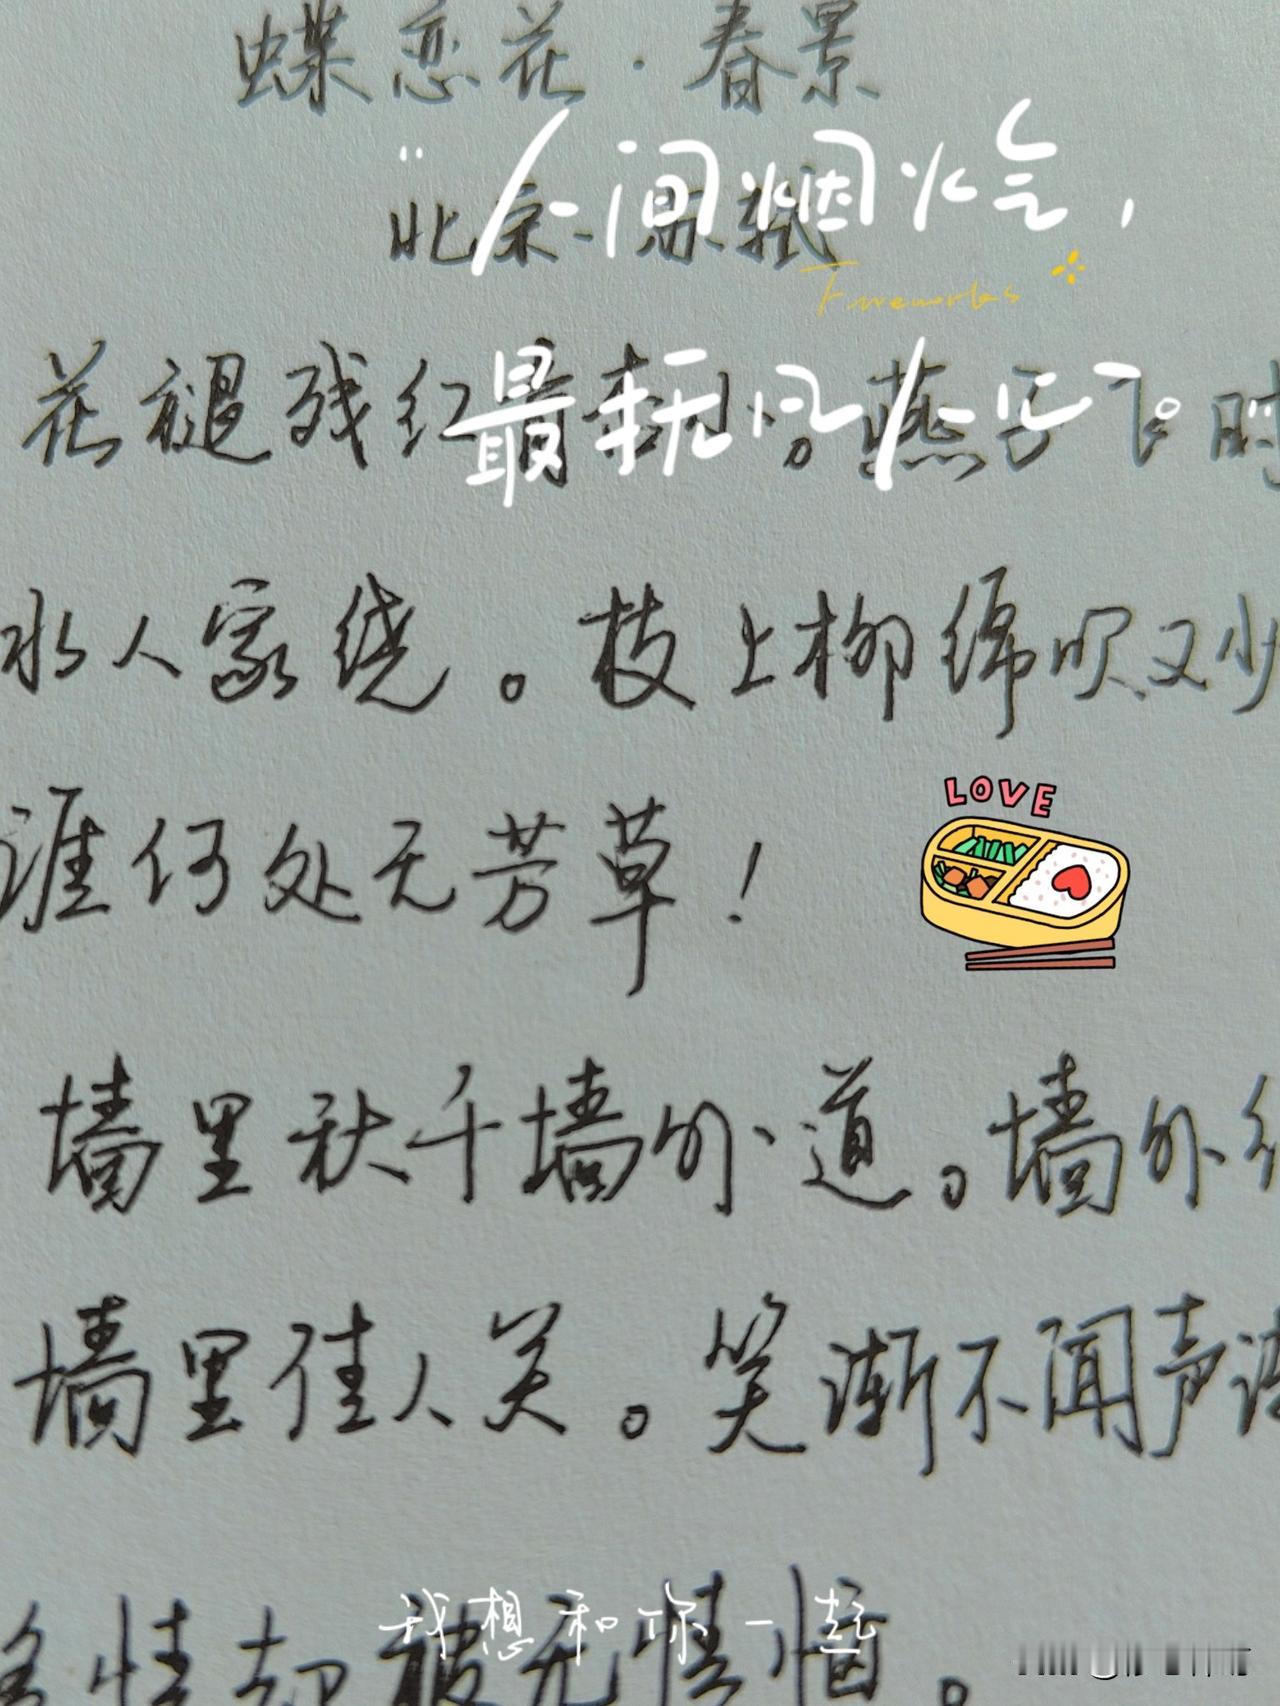 蝶恋花·春景
“人间烟火气，
北宋·苏轼
Fireworks
花褪残红青杏小。燕子飞时
最抚凡人心。
水人家绕。枝上柳绵吹又少
涯何处无芳草！
LOVE
墙里秋千墙外道。墙外
墙里佳人关。笑渐不闻声渐
多情却被无情恼。
我想和你一起